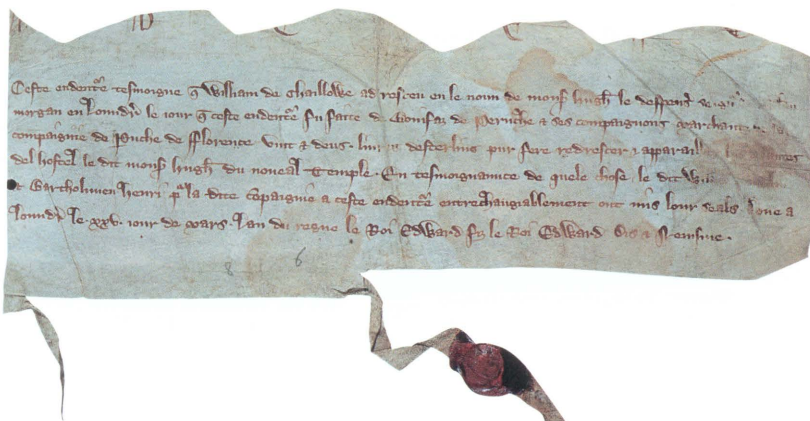 Ceste endenture tesmoigne q̃ William de Chaillowe ad resceu en le noun de monsr̃ hugh le despens̃
morgan en loundr̃ le iour q̃ ceste endenture fu faite de Bonifaz de Peruche & ses compaignons marchantz
compaignie de Peruche de fflorence vint & deus liures desterlings pur fere redrescer & apparail
del hostel le dit monsr̃ hugh du noueal Temple. En tesmoignaunce de quele chose le dit Will
& Bartholmeu henri p̃ la dite cōpaignie a ceste endenture entrechaungiablement ount mis lour seals. done a
loundr̃ le xxv. iour de mars. lan du regne le Roi Edward fiz le Roi Edward Dis & Neofime.
8 6